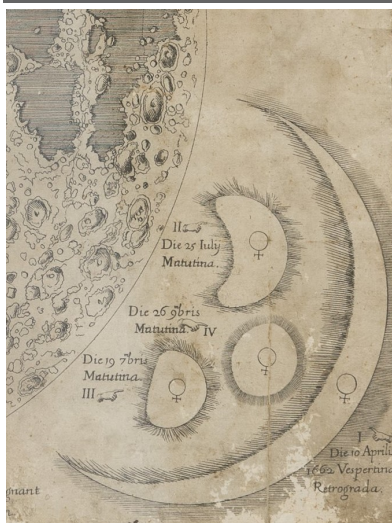 II
Die 25 Iuly
Matutina.
Die 26 9bris
Matutina IV
Die 19 7bris
Matutina.
III
I
Die 10 Aprilis
1662 Vespertina
Retrograda.
gnant